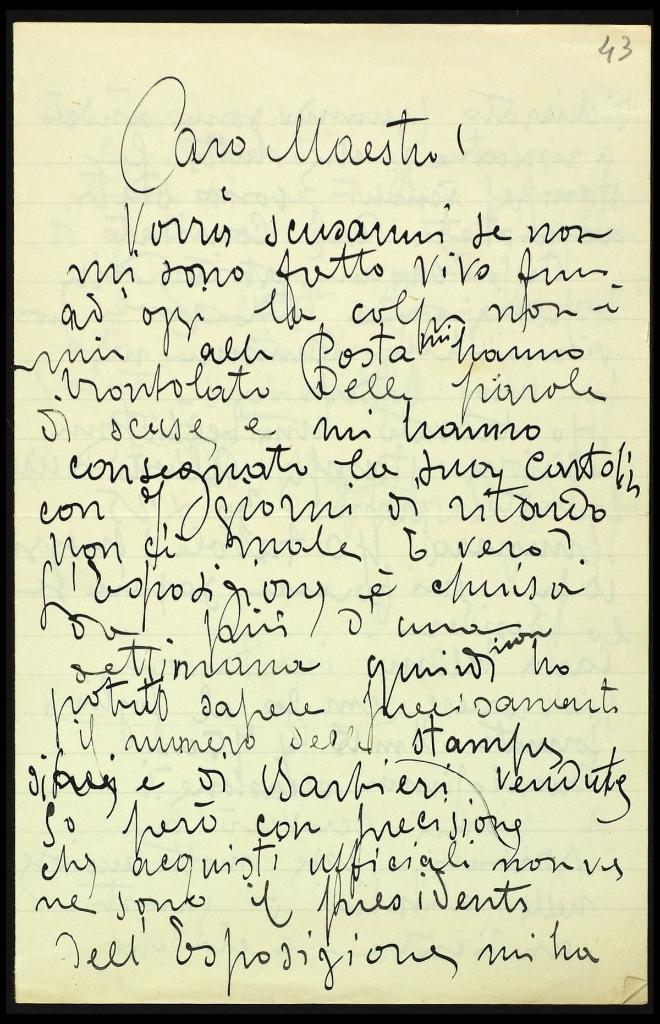 43
Caro Maestro!
Vorrà scusarmi se non
mi sono fatto vivo fin
ad oggi la colpa non è
mia alla Posta mi hanno
brontolato delle parole
di scuse e mi hanno
consegnato la sua cartolina
con giorni di ritardo
non c'è male è vero?
L'Esposizione è chiusa
da più d'una
settimana quindi non ho
potuto sapere precisamente
il numero delle stampe
di e di Barbieri vendute
So però con precisione
che acquisti ufficiali non ve
ne sono il presidente
dell'Esposizione mi ha